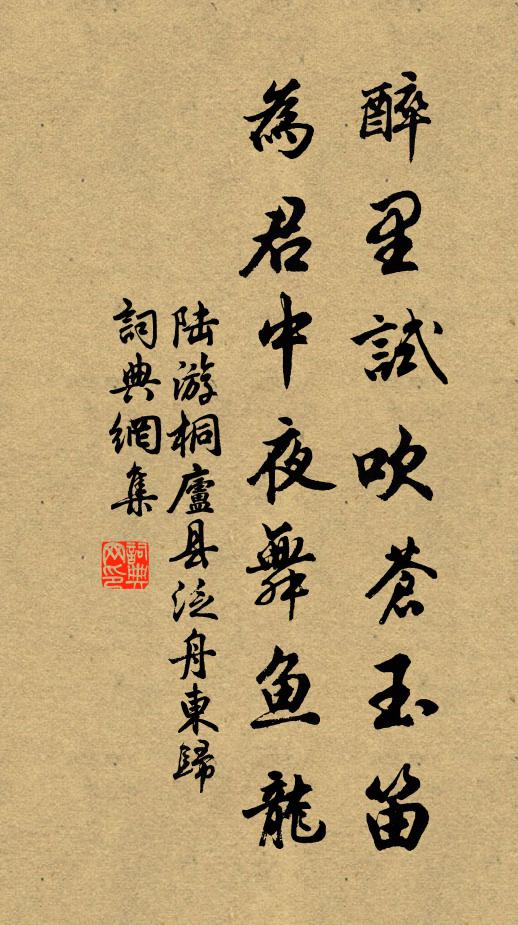 醉里試吹蒼玉笛
為君中夜舞鱼龍
陆游桐廬县泛舟東歸
詞典網集
詞典網印